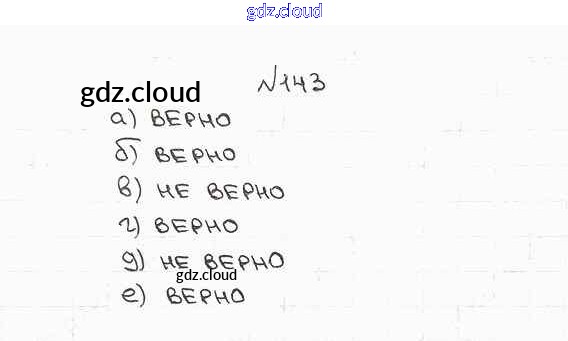 gdz.cloud
№143
gdz.cloud
а) ВЕРНО
б) ВЕРНО
в) НЕ ВЕРНО
г) ВЕРНО
д) НЕ ВЕРНО
gdz.cloud
е) ВЕРНО